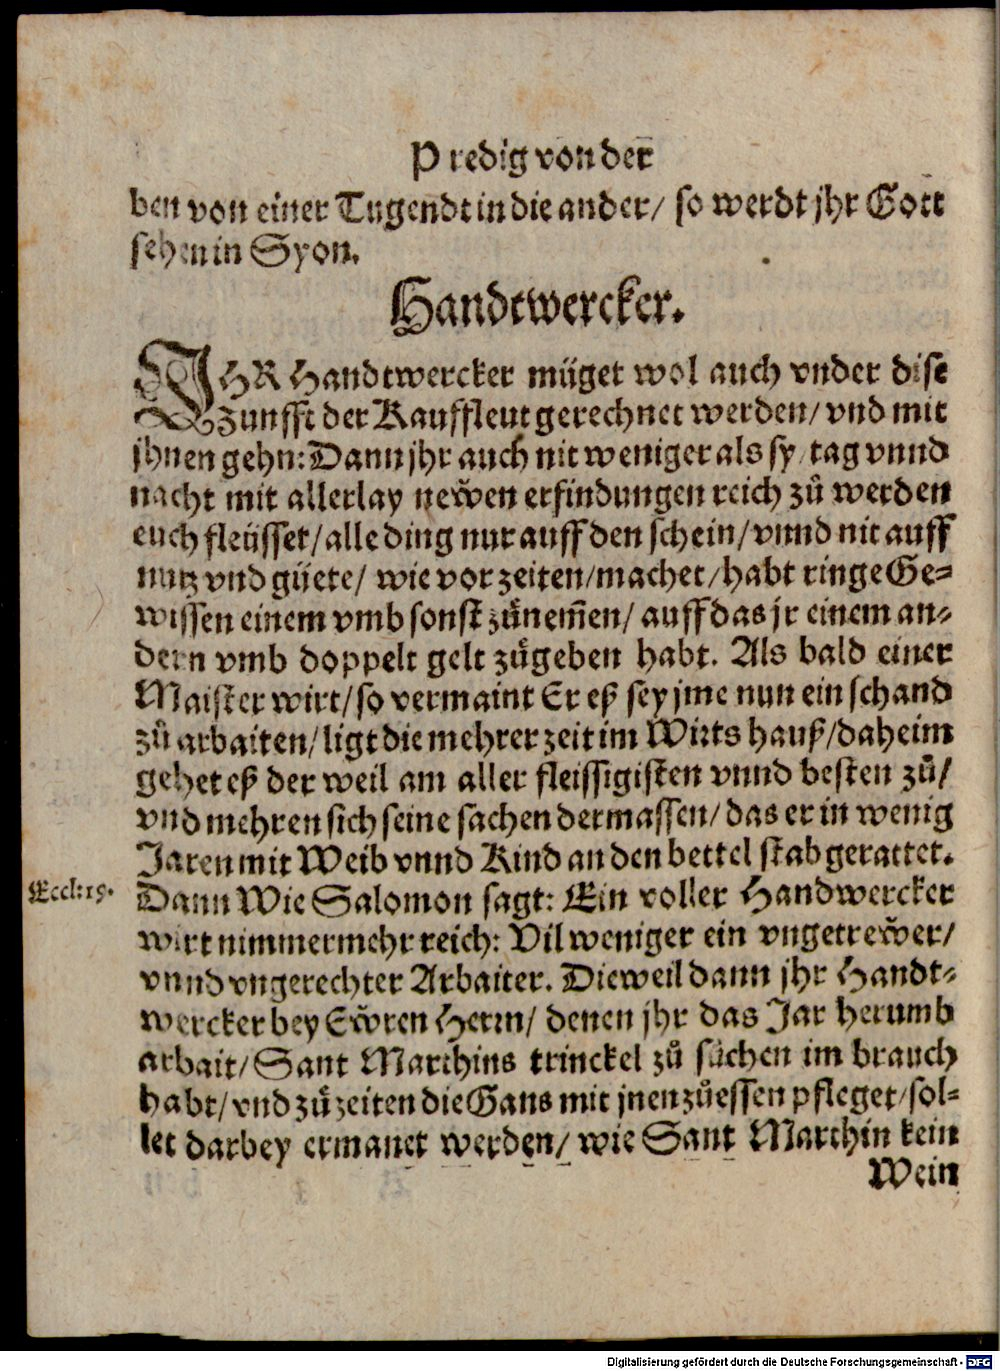 Predig von der
ben von einer Tugendt in die ander/ so werdt jhr Gott
sehen in Syon.
Handtwercker.
IHR Handtwercker müget wol auch vnder dise
Zunfft der Kauffleut gerechnet werden/ vnd mit
jhnen gehn: Dann jhr auch nit weniger als sy/ tag vnnd
nacht mit allerlay newen erfindungen reich zů werden
euch fleüsset/ alle ding nur auff den schein/ vnnd nit auff
nutz vnd güete/ wie vor zeiten/ machet/ habt ringe Ge-
wissen einem vmb sonst zůnem̃en/ auff das jr einem an-
dern vmb doppelt gelt zůgeben habt. Als bald einer
Maister wirt/ so vermaint Er eß sey jme nun ein schand
zů arbaiten/ ligt die mehrer zeit im Wirts hauß/ daheim
gehet eß der weil am aller fleissigisten vnnd besten zů/
vnd mehren sich seine sachen dermassen/ das er in wenig
Jaren mit Weib vnnd Kind an den bettel stab gerattet.
Eccl: 19.
Dann Wie Salomon sagt: Ein voller Handwercker
wirt nimmermehr reich: Vil weniger ein vngetrewer/
vnnd vngerechter Arbaiter. Dieweil dann jhr Handt-
wercker bey Ewren Herrn/ denen jhr das Jar herumb
arbait/ Sant Marthins trinckel zů sůchen im brauch
habt/ vnd zů zeiten die Gans mit jnen zůessen pfleget/ sol-
let darbey ermanet werden/ wie Sant Marthin kein
Wein
Digitalisierung gefördert durch die Deutsche Forschungsgemeinschaft - DFG